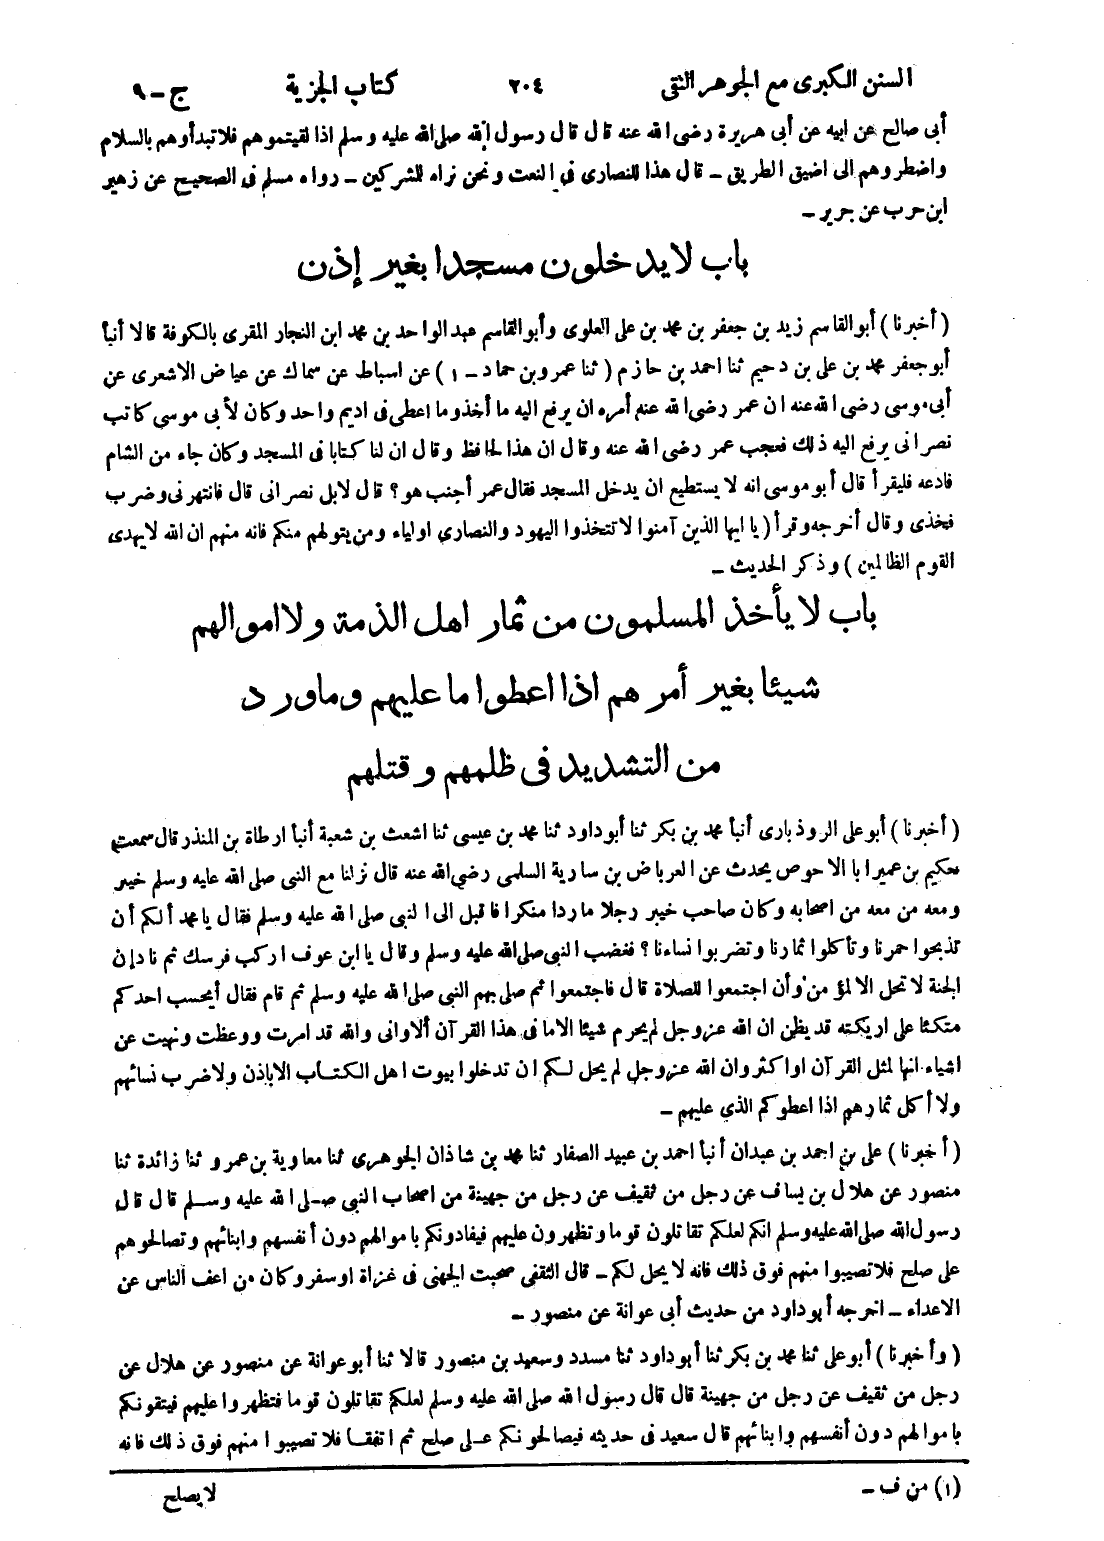 السنن الكبرى مع الجوهر النقى ٢٠٤ كتاب الجزية ج-٩
أبى صالح عن ابيه عن أبى هريرة رضى الله عنه قال قال رسول الله صلى الله عليه وسلم اذا لقيتموهم فلا تبدأوهم بالسلام
واضطروهم الى اضيق الطريق - قال هذا للنصارى فى النعت ونحن نراه للشركين - رواه مسلم فى الصحيح عن زهير
ابن حرب عن جرير -
باب لا يدخلون مسجدا بغير إذن
(أخبرنا) أبو القاسم زيد بن جعفر بن محمد بن على العلوى وأبو القاسم عبد الواحد بن محمد ابن النجار المقرى بالكوفة قالا أنبأ
أبو جعفر محمد بن على بن دحيم ثنا احمد بن حازم (ثنا عمرو بن حماد - ١) عن اسباط عن سماك عن عياض الاشعرى عن
أبى موسى رضى الله عنه ان عمر رضى الله عنه أمره ان يرفع اليه ما أخذ وما اعطى فى اديم واحد وكان لأبى موسى كاتب
نصرانى يرفع اليه ذلك فعجب عمر رضى الله عنه وقال ان هذا لحافظ وقال ان لنا كتابا فى المسجد وكان جاء من الشام
فادعه فليقرأ قال أبو موسى انه لا يستطيع ان يدخل المسجد فقال عمر أجنب هو؟ قال لا بل نصرانى قال فانتهرنى وضرب
فخذى وقال أخرجه وقرأ (يا ايها الذين آمنوا لا تتخذوا اليهود والنصارى اولياء ومن يتولهم منكم فانه منهم ان الله لا يهدى
القوم الظالمين) وذكر الحديث -
باب لا يأخذ المسلمون من ثمار اهل الذمة ولا اموالهم
شيئا بغير أمرهم اذا اعطوا ما عليهم وماورد
من التشديد فى ظلمهم وقتلهم
(أخبرنا) أبو على الروذبارى أنبأ محمد بن بكر ثنا أبو داود ثنا محمد بن عيسى ثنا اشعث بن شعبة أنبأ ارطاة بن المنذر قال سمعت
حكيم بن عمير ابا الاحوص يحدث عن العرباض بن سارية السلمى رضى الله عنه قال نزلنا مع النبى صلى الله عليه وسلم خيبر
ومعه من معه من اصحابه وكان صاحب خيبر رجلا ماردا منكرا فاقبل الى النبى صلى الله عليه وسلم فقال يا محمد ألكم أن
تذبحوا حمرنا وتأكلوا ثمارنا وتضربوا نساءنا؟ فغضب النبى صلى الله عليه وسلم وقال يا ابن عوف اركب فرسك ثم ناد إن
الجنة لا تحل الا لمؤمن وأن اجتمعوا للصلاة قال فاجتمعوا ثم صلى بهم النبى صلى الله عليه وسلم ثم قام فقال أيحسب احدكم
متكئا على اريكته قد يظن ان الله عز وجل لم يحرم شيئا الا ما فى هذا القرآن ألا وانى والله قد امرت ووعظت ونهيت عن
اشياء انها لمثل القرآن او اكثر وان الله عز وجل لم يحل لكم ان تدخلوا بيوت اهل الكتاب الا باذن ولا ضرب نسائهم
ولا أكل ثمارهم اذا اعطوكم الذي عليهم -
(أخبرنا) على بن احمد بن عبدان أنبأ احمد بن عبيد الصفار ثنا محمد بن شاذان الجوهرى ثنا معاوية بن عمرو ثنا زائدة ثنا
منصور عن هلال بن يساف عن رجل من ثقيف عن رجل من جهينة من اصحاب النبى صلى الله عليه وسلم قال قال
رسول الله صلى الله عليه وسلم انكم لعلكم تقاتلون قوما وتظهرون عليهم فيفادونكم باموالهم دون أنفسهم وابنائهم وتصالحوهم
على صلح فلا تصيبوا منهم فوق ذلك فانه لا يحل لكم - قال الثقفى صحبت الجهنى فى غزاة او سفر وكان من اعف الناس عن
الاعداء - اخرجه أبو داود من حديث أبى عوانة عن منصور -
(وأخبرنا) أبو على ثنا محمد بن بكر ثنا أبو داود ثنا مسدد وسعيد بن منصور قالا ثنا أبو عوانة عن منصور عن هلال عن
رجل من ثقيف عن رجل من جهينة قال قال رسول الله صلى الله عليه وسلم لعلكم تقاتلون قوما فتظهروا عليهم فيتقونكم
باموالهم دون أنفسهم وابنائهم قال سعيد فى حديثه فيصالحونكم على صلح ثم اتفقا فلا تصيبوا منهم فوق ذلك فانه
(١) من ف - لا يصلح